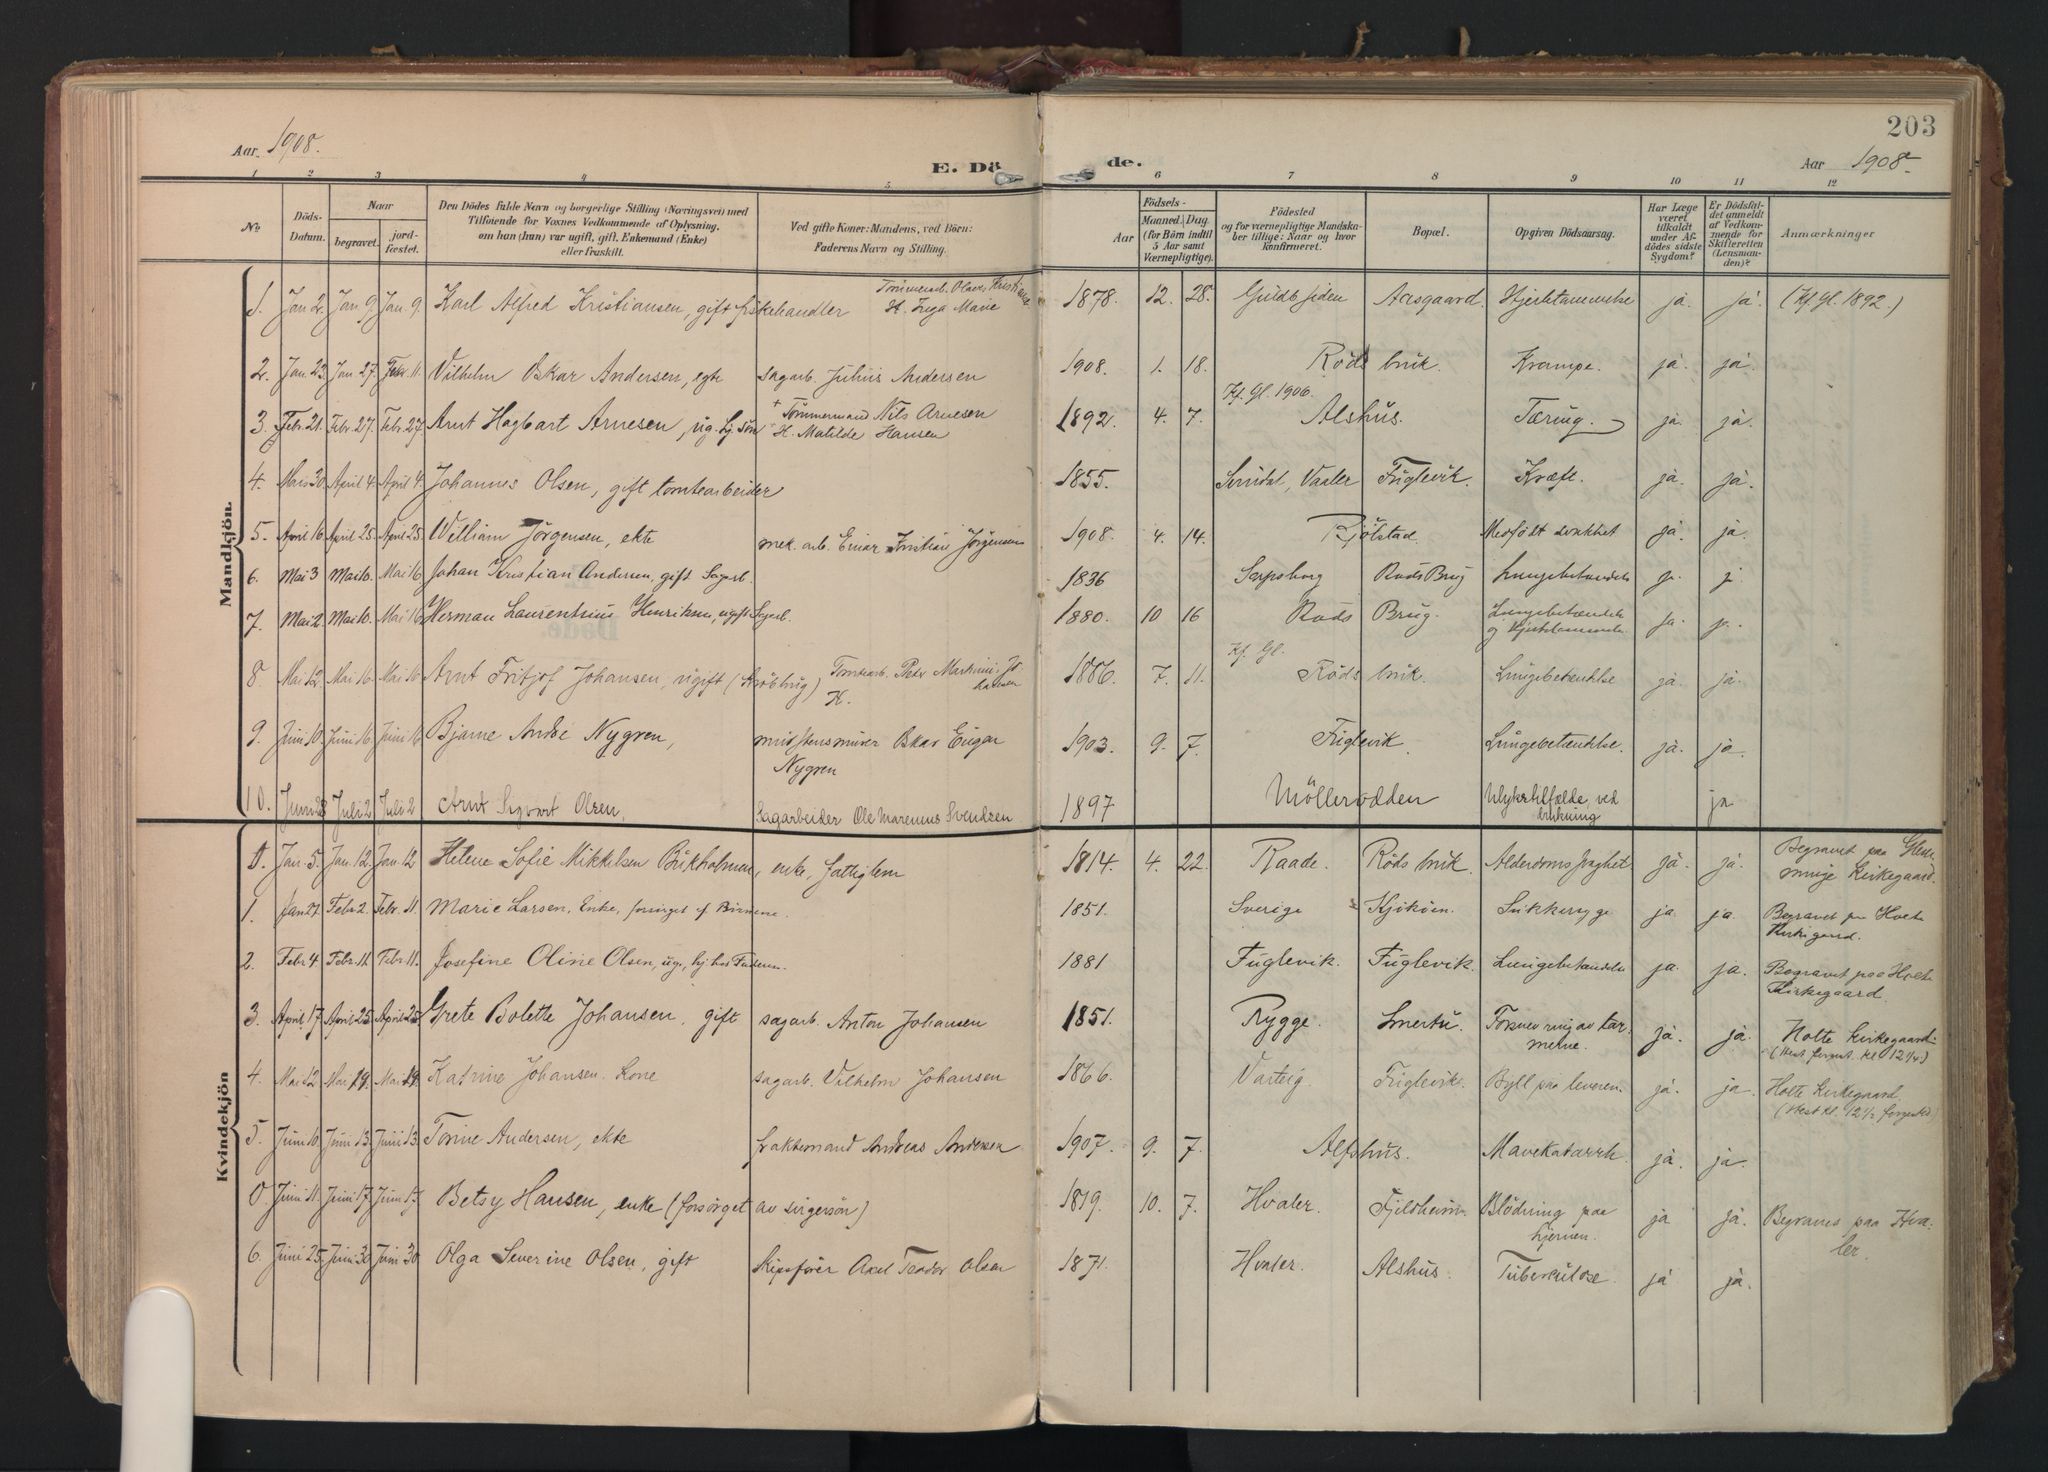 203
Aar 1908.
E. Dö de.
Aar 1908
1 2 3 4 5 6 7 8 9 10 11 12
No
Döds-Datum.
Naar
begravet.
jord-fæstet.
Den Dödes fulde Navn og borgerlige Stilling (Næringsvei) med
Tilføiende for Voxnes Vedkommende af Oplysning,
om han (hun) var ugift, gift, Enkemand (Enke)
eller fraskilt.
Ved gifte Koner: Mandens, ved Börn:
Faderens Navn og Stilling.
Aar
Födsels-
Maaned. Dag
(for Börn indtil
5 Aar samt
Værnepligtige).
Födested
og for værnepligtige Mandska-
ber tillige: Naar og hvor
konfirmeret.
Bopæl.
Opgiven Dödsaarsag.
Har Læge
været
tilkaldt
under Af-
dödes sidste
Sygdom?
Er Dödsfal-
det anmeldt
af Vedkom-
mende for
Skifteretten
(Lensman-
den)?
Anmærkninger
Mandkjön.
1. Jan 2. Jan 9. Jan 9. Karl Alfred Kristiansen, gift fiskehandler H. Inga Marie 1878. 12. 28. Aasgaard. ja. ja. (Kf. Gl. 1892.)
2. Jan. 23. Jan 27. Febr. 11. Vilhelm Oskar Andersen, egte sagarb. Julius Andersen 1908. 1. 18. Röds brük. Krampe. ja. ja.
Kf. Gl. 1906.
3. Febr 21. Febr. 27. Febr. 27. Arnt Hagbart Arnesen, ug. + Tömmermand Nils Arnesen
H. Matilde Hansen 1892. 4. 7. Alshus. Tæring. ja. ja.
4. Mars 30. April 4. April 4. Johannes Olsen, gift tomtearbeider 1855. Svindal, Vaaler Füglevik. Kræft. ja. ja.
5. April 16. April 25. April 25. William Jörgensen, ekte mek. arb. Einar Kristian Jörgensen 1908. 4. 14. Medfödt svakhet ja. ja.
6. Mai 3 Mai 10. Mai 16. Johan Kristian Andersen, gift Sagarb. 1836 Sarpsborg Rods Brug Lungebetændelse
7. Mai 2. Mai 10. Mai 16. Herman Laurentsius Henriksen, ugift Sagarb. 1880. 10 16 Rods Brug. Lungebetændelse
og Hjertelammelse. ja.
Kf. Gl.
8. Mai 12. Mai 16. Mai 16. Arnt Fritjof Johansen, ugift Tomtearb. Peter Martinius Jo
hansen
H. 1886. 7. 11. Röds brük. Lüngebetændelse ja. ja.
9. Juni 10. Juni 16. Juni 16. Bjarne Andre Nygren, Oskar Eugen
Nygren 1903. 9. 7. Füglevik. Lüngebetændelse. ja. ja.
10. Juni 28 Juli 2 Juli 2 Arnt Sigvart Olsen, Sagarbeider Ole Marenius Svendsen 1897 Möllerodden Ulykestilfælde, ved
drukning ja.
Kvindekjön
0. Jan. 5. Jan. 12. Jan. 12 Helene Sofie Mikkelsen enke, fattiglem 1814. 4. 22. Raade. Röds brük. Alderdomssvaghet ja. ja. Begravet paa
Kirkegaard.
1. Jan 27. Febr 2. Febr. 11. Marie Larsen, Enke, forsörget af Börnene. 1851. Sverige Kjököen. Sükkersyge ja. ja. Begravet paa Holte
Kirkegaard.
2. Febr 4 Febr. 11. Febr. 11. Josefine Oline Olsen, ug., hj. hos Faderen. 1881 Füglevik. Füglevik. Lungebetændelse ja. ja. Begravet paa Holte
Kirkegaard.
3. April 17 April 25 April 25 Grete Bolette Johansen, gift sagarb. Anton Johansen 1851. Rygge. Smertu. Forsnevring av tar-
mene. ja. ja. Holte Kirkegaard.
4. Mai 12 Mai 19. Mai 19. Katrine Johansen. Kone sagarb. Vilhelm Johansen 1866. Varteig. Füglevik. Byll paa leveren. ja. ja. Holte Kirkegaard.
5. Juni 10. Juni 13. Juni 13. Torine Andersen, ekte fraktemand Andreas Andersen 1907. 9. 7. Alfshus. Mavekatarrh. ja. ja.
0. Juni 11. Juni 17. Juni 17. Betsy Hansen, enke (forsörget av svigersön) 1819. 10. 7. Hvaler. Fjeldheim. Blödning paa
hjernen. ja ja. Begraves paa Hva-
ler.
6. Juni 25. Juni 30 Juni 30 Olga Severine Olsen, gift skipsförer Axel Teodor Olsen 1871. Hvaler. Alshus. Tüberkülose. ja ja.